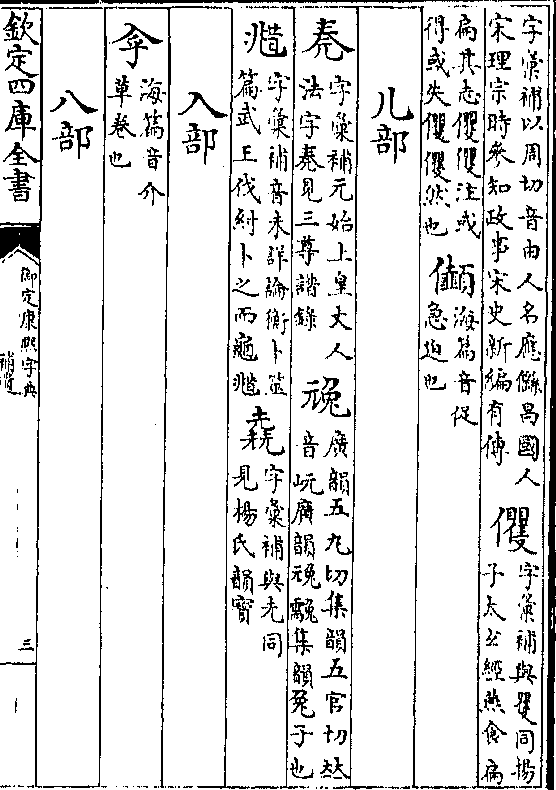 字彙補以周切音由人名應㒡昌國人
宋理宗時參知政事宋史新編有傳
㒧
字彙補與瞿同揚
子太玄經熱食扁
扁其志㒧㒧注或
得或失㒧㒧然也
海篇音促
急迫也
儿部
字彙補元始上皇丈人
法字秦見三尊譜錄
廣韻五丸切集韻五官切𠀤
音岏廣韻䝎集韻兔子也
字彙補音未詳論衡卜筮
篇武王伐紂卜之而龜
字彙補與先同
見楊氏韻寶
入部
海篇音介
草卷也
八部
欽定四庫全書
御定康熙字典
補遺
三